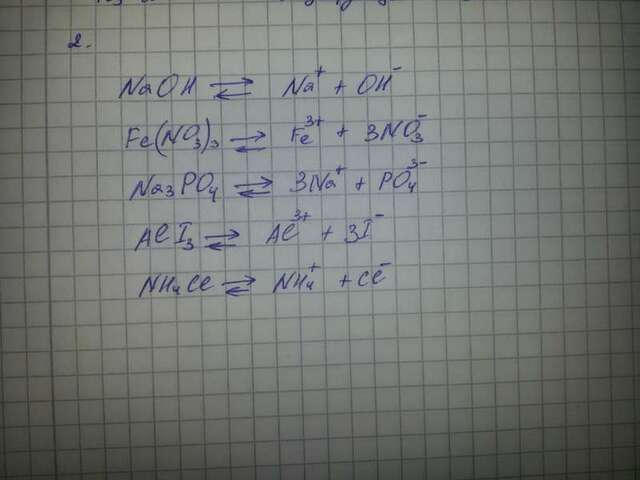 2.
NaOH ⇌ Na⁺ + OH⁻
Fe(NO₃)₃ ⇌ Fe³⁺ + 3NO₃⁻
Na₃PO₄ ⇌ 3Na⁺ + PO₄³⁻
AlI₃ ⇌ Al³⁺ + 3I⁻
NH₄Cl ⇌ NH₄⁺ + Cl⁻